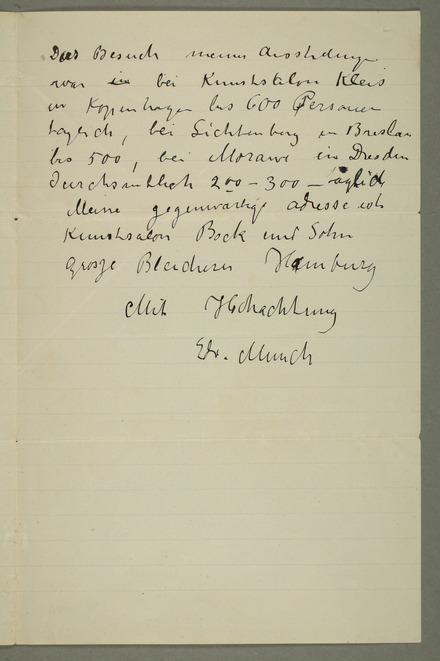 Das Besuch meiner Ausstellunge
war in bei Kunstsalon Kleis
in Koppenhagen bis 600 Personen
taglich, bei Lichtenberg in Breslau
bis 500, bei Morawe in Dresden
durchsnitlich 200 – 300 – täglich
Meine gegenwartige adresse ist
Kunstsalon Bock und Sohn
Grosze Bleichen Hamburg
Mit Hochachtung
Edv. Munch